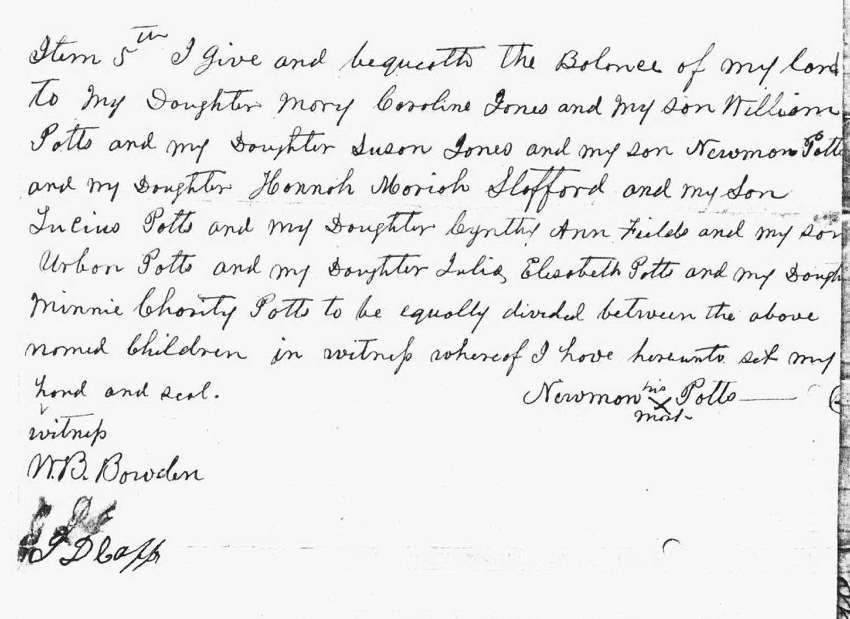 Item 5th I Give and bequeath the Balance of my land
to my Daughter Mary Caroline Jones and my son William
Potts and my Daughter Susan Jones and my son Newman Potts
and my Daughter Hannah Moriah Slafford and my Son
Lucius Potts and my Daughter Cynthy Ann Fields and my son
Urban Potts and my Daughter Julia Elisabeth Potts and my Daugh
Minnie Charity Potts to be equally divided between the above
named Children in witness whereof I have hereunto set my
hand and seal. Newman his X mark Potts
witness
W.B. Bowden